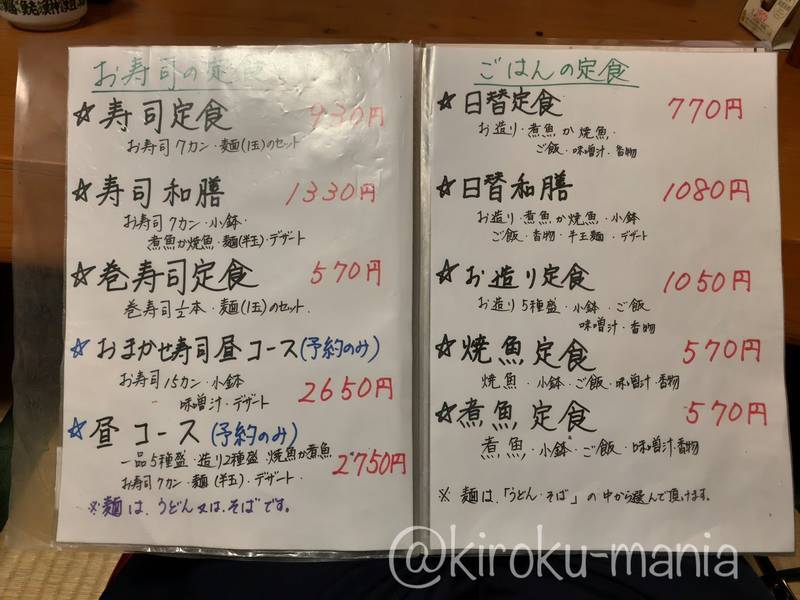 お寿司の定食
☆寿司定食 930円
お寿司7カン・麺(1玉)のセット
☆寿司和膳 1330円
お寿司7カン・小鉢・
煮魚か焼魚・麺(半玉)・デザート
☆巻寿司定食 570円
巻寿司1/2本・麺(1玉)のセット.
☆おまかせ寿司昼コース(予約のみ)
お寿司15カン・小鉢 2650円
味噌汁・デザート
☆昼コース(予約のみ)
一品5種盛・造り2種盛 焼魚か煮魚 2750円
お寿司7カン・麺(半玉)・デザート.
※麺は、うどん又は、そばです。
ごはんの定食
☆日替定食 770円
お造り・煮魚か焼魚・
ご飯・味噌汁・香物
☆日替和膳 1080円
お造り・煮魚か焼魚・小鉢
ご飯・香物・半玉麺・デザート
☆お造り定食 1050円
お造り5種盛・小鉢・ご飯
味噌汁・香物
☆焼魚定食 570円
焼魚・小鉢・ご飯・味噌汁・香物
☆煮魚定食 570円
煮魚・小鉢・ご飯・味噌汁・香物
※麺は、「うどん・そば」の中から選んで頂けます。
@kiroku-mania